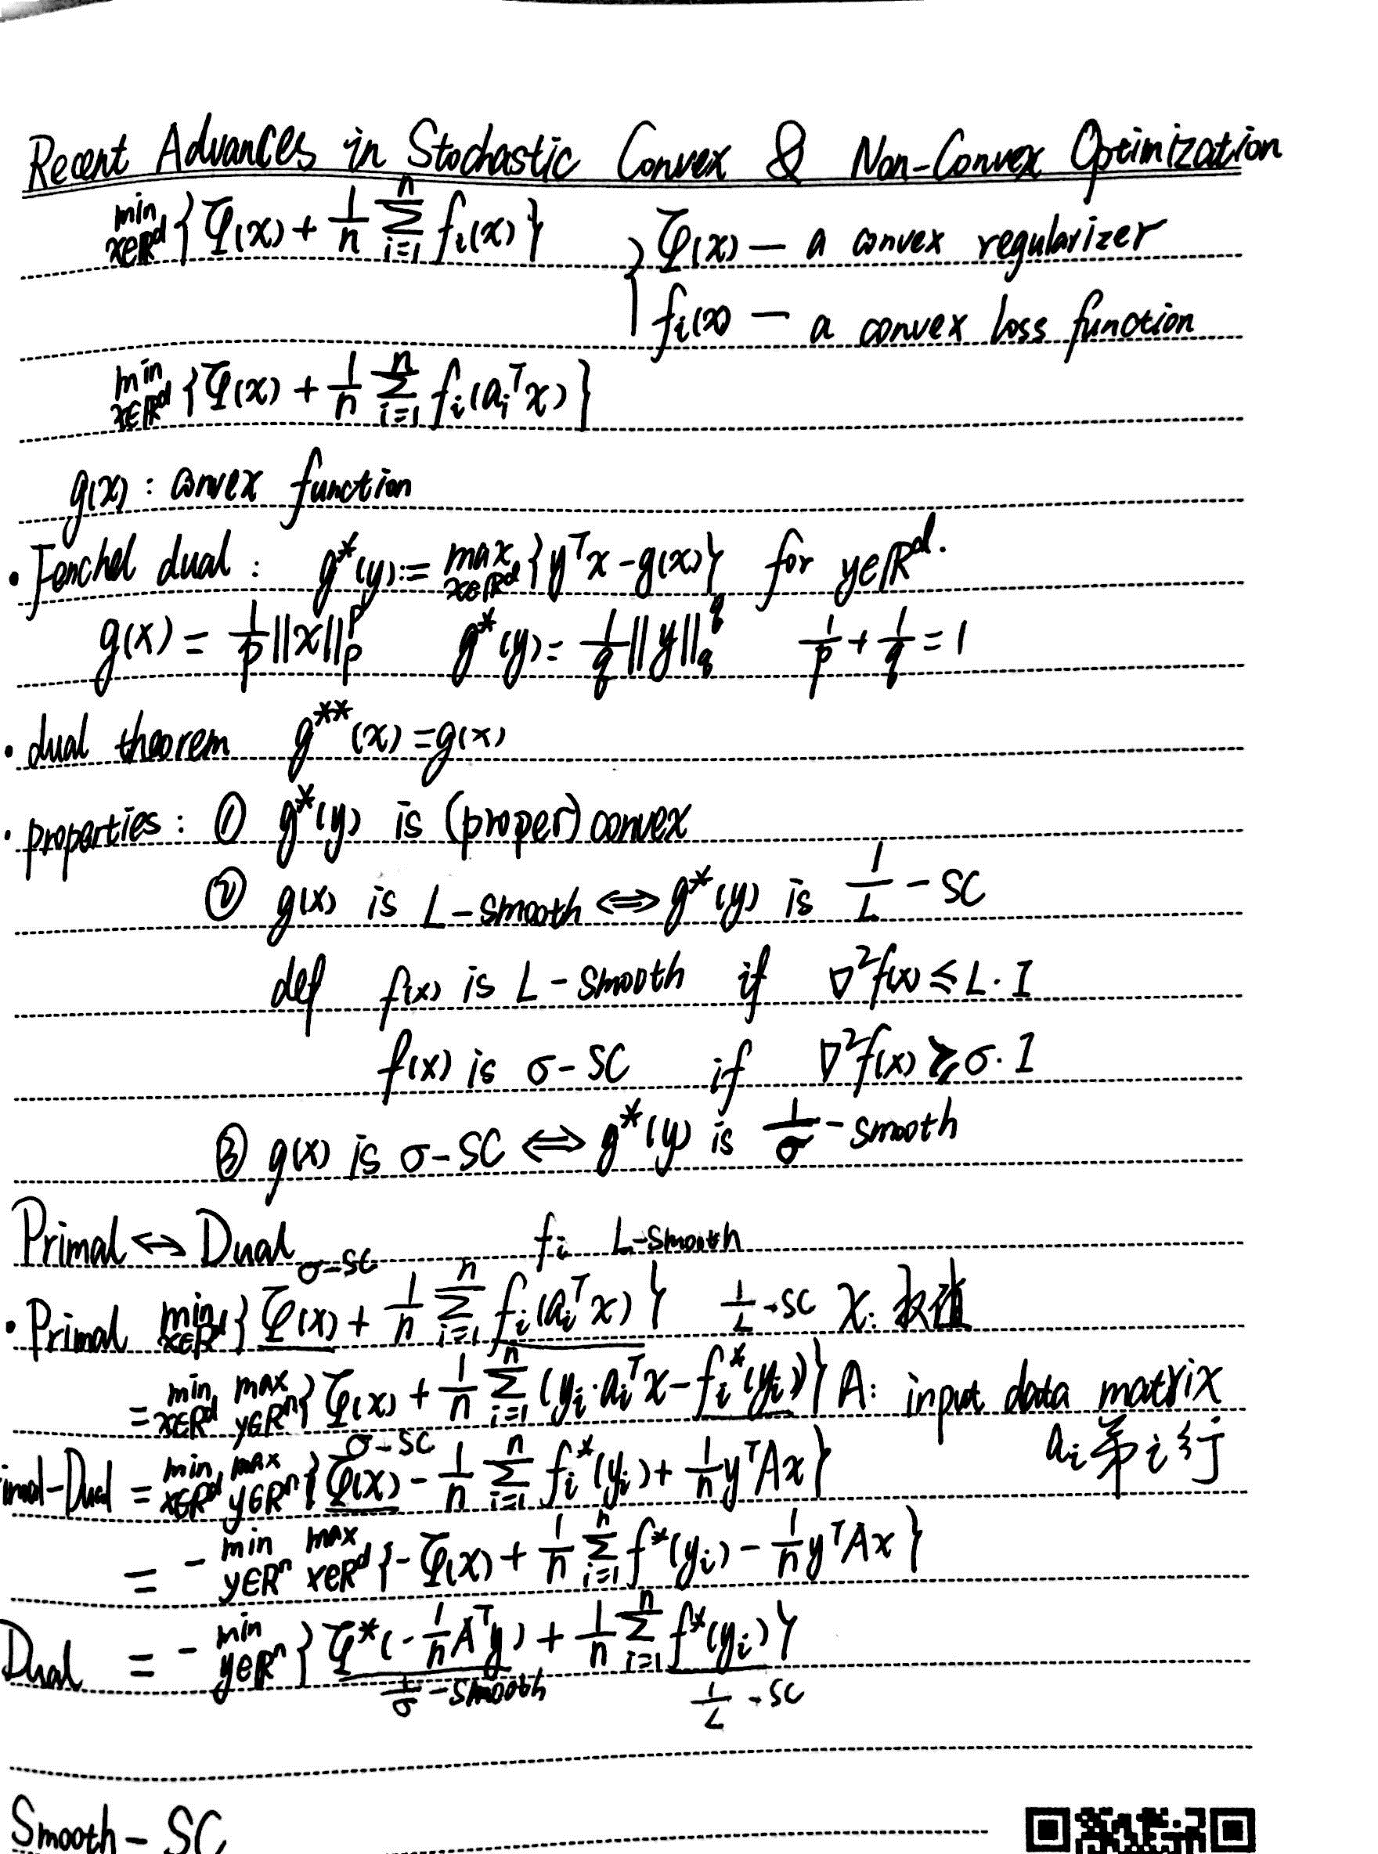 Recent Advances in Stochastic Convex & Non-Convex Optimization
min x∈ℝ^d {Ψ(x) + 1/n Σ_{i=1}^n f_i(x)} { Ψ(x) — a convex regularizer
f_i(x) — a convex loss function
min x∈ℝ^d {Ψ(x) + 1/n Σ_{i=1}^n f_i(a_i^T x)}
g(x) : convex function
· Fenchel dual : g*(y) := max x∈ℝ^d {y^T x - g(x)} for y∈ℝ^d.
g(x) = 1/p ||x||_p^p g*(y) = 1/q ||y||_q^q 1/p + 1/q = 1
· dual theorem g**(x) = g(x)
· properties : ① g*(y) is (proper) convex
② g(x) is L-smooth ⇔ g*(y) is 1/L - SC
def f(x) is L-smooth if ∇²f(x) ≤ L·I
f(x) is σ-SC if ∇²f(x) ≥ σ·I
③ g(x) is σ-SC ⇔ g*(y) is 1/σ - smooth
Primal ↔ Dual f_i L-smooth
σ-SC
· Primal min x∈ℝ^d {Ψ(x) + 1/n Σ_{i=1}^n f_i(a_i^T x)} 1/L-SC x: 权值
= min x∈ℝ^d max y∈ℝ^n {Ψ(x) + 1/n Σ_{i=1}^n (y_i·a_i^T x - f_i*(y_i))} A: input data matrix
σ-SC a_i 第i行
imal-Dual = min x∈ℝ^d max y∈ℝ^n {Ψ(x) - 1/n Σ_{i=1}^n f_i*(y_i) + 1/n y^T A x}
= - min y∈ℝ^n max x∈ℝ^d {-Ψ(x) + 1/n Σ_{i=1}^n f*(y_i) - 1/n y^T A x}
Dual = - min y∈ℝ^n {Ψ*(-1/n A^T y) + 1/n Σ_{i=1}^n f*(y_i)}
1/σ-smooth 1/L-SC
Smooth - SC